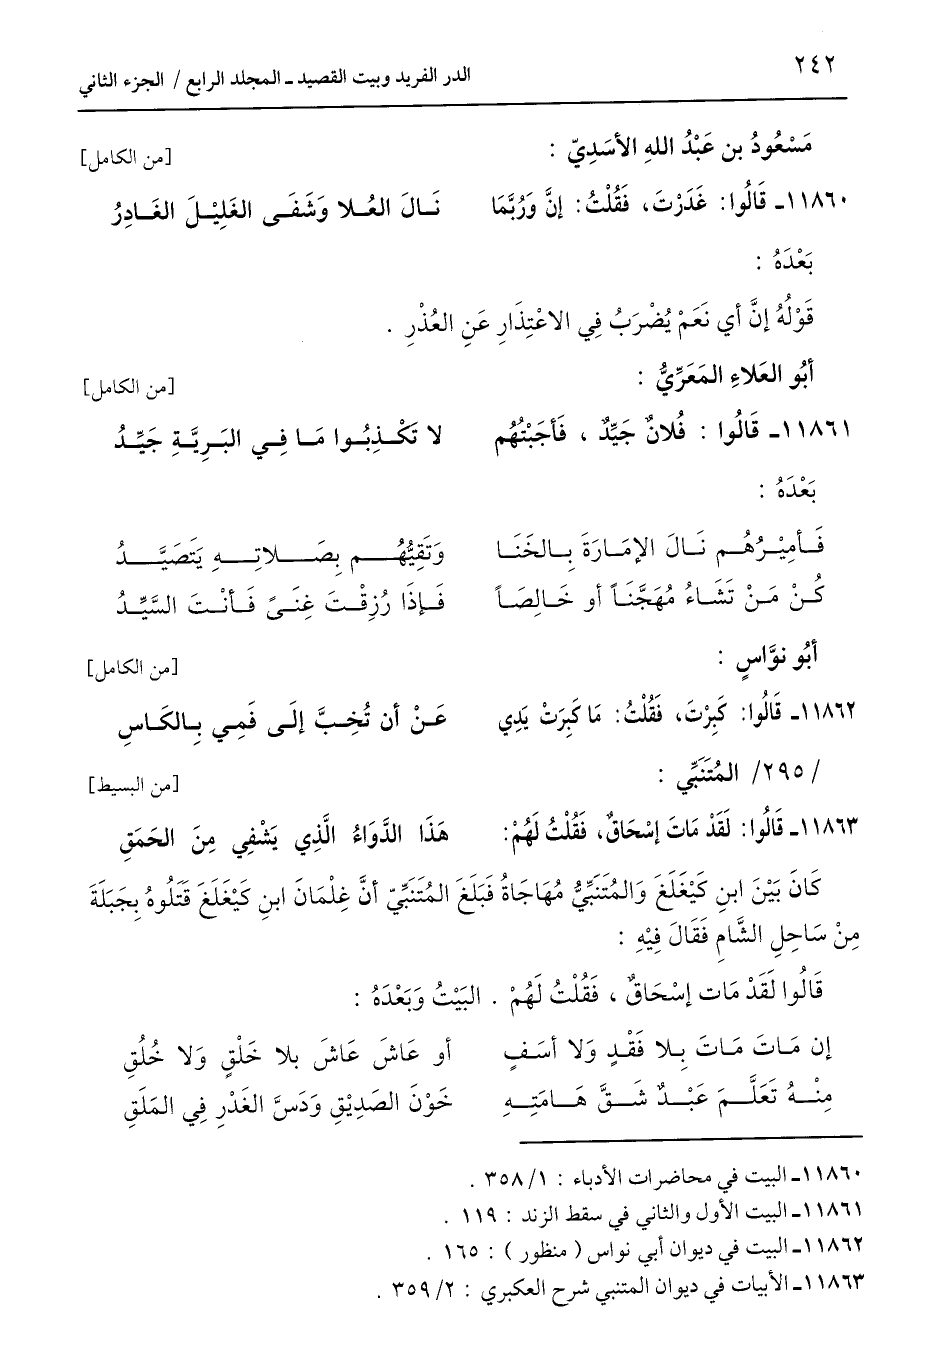 ٢٤٢
الدر الفريد وبيت القصيد ـ المجلد الرابع / الجزء الثاني
مَسْعُودُ بن عَبْدُ اللهِ الأَسَدِيّ :
[من الكامل]
١١٨٦٠ـ قَالُوا: غَدَرْتَ، فَقُلْتُ: إنَّ وَرُبَّمَا نَالَ العُلا وَشَفَى الغَلِيْلَ الغَادِرُ
بَعْدَهُ :
قَوْلُهُ إنَّ أي نَعَمْ يُضْرَبُ فِي الاعْتِذَارِ عَنِ العُذْرِ .
أبُو العَلاءِ المَعَرِّيُّ :
[من الكامل]
١١٨٦١ـ قَالُوا : فُلانٌ جَيِّدٌ ، فَأجَبْتُهُم لا تَكْذِبُوا مَا فِي البَرِيَّةِ جَيِّدُ
بَعْدَهُ :
فَأمِيْرُهُم نَالَ الإمَارَةَ بِالخَنَا وَتَقِيُّهُم بِصَلاتِهِ يَتَصَيَّدُ
كُنْ مَنْ تَشَاءُ مُهَجَّنَاً أو خَالِصَاً فَإذَا رُزِقْتَ غِنَىً فَأنْتَ السَّيِّدُ
أبُو نوَّاسٍ :
[من الكامل]
١١٨٦٢ـ قَالُوا: كَبِرْتَ، فَقُلْتُ: مَا كَبِرَتْ يَدِي عَنْ أن تُخِبَّ إلَى فَمِي بِالكَاسِ
/٢٩٥/ المُتَنَبِّي :
[من البسيط]
١١٨٦٣ـ قَالُوا: لَقَدْ مَاتَ إسْحَاقٌ، فَقُلْتُ لَهُمْ: هَذَا الدَّوَاءُ الَّذِي يَشْفِي مِنَ الحَمَقِ
كَانَ بَيْنَ ابنِ كَيْغَلَغَ وَالمُتَنَبِّيُّ مُهَاجَاةُ فَبَلَغَ المُتَنَبِّيّ أنَّ غِلْمَانَ ابنِ كَيْغَلَغَ قَتَلُوهُ بِجَبَلَةَ
مِنْ سَاحِلِ الشَّامِ فَقَالَ فِيْهِ :
قَالُوا لَقَدْ مَات إسْحَاقٌ ، فَقُلْتُ لَهُمْ . البَيْتُ وَبَعْدَهُ :
إن مَاتَ مَاتَ بِلا فَقْدٍ وَلا أسَفٍ أو عَاشَ عَاشَ بلا خَلْقٍ وَلا خُلُقِ
مِنْهُ تَعَلَّمَ عَبْدٌ شَقَّ هَامَتِهِ خَوْنَ الصَدِيْقِ وَدَسَّ الغَدْرِ فِي المَلَقِ
١١٨٦٠ـ البيت في محاضرات الأدباء : ١/ ٣٥٨ .
١١٨٦١ـ البيت الأول والثاني في سقط الزند : ١١٩ .
١١٨٦٢ـ البيت في ديوان أبي نواس ( منظور ) : ١٦٥ .
١١٨٦٣ـ الأبيات في ديوان المتنبي شرح العكبري : ٢/ ٣٥٩ .